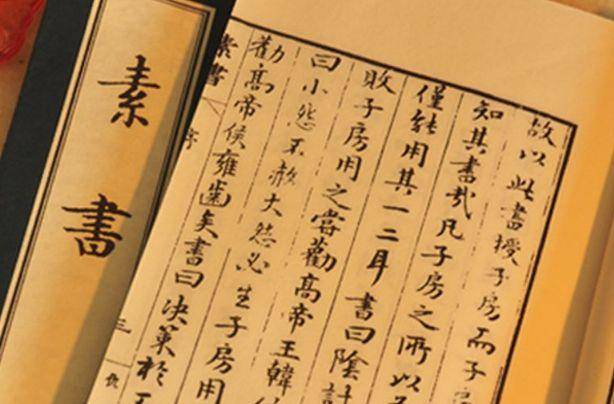 故以此書授子房而子
知其書哉凡子房之所以
僅能用其一二耳書曰陰計
敗子房用之嘗勸高帝王韓
曰小怨不赦大怨必生子房用
勸高帝侯雍齒矣書曰決策於
素書 序
三
素書